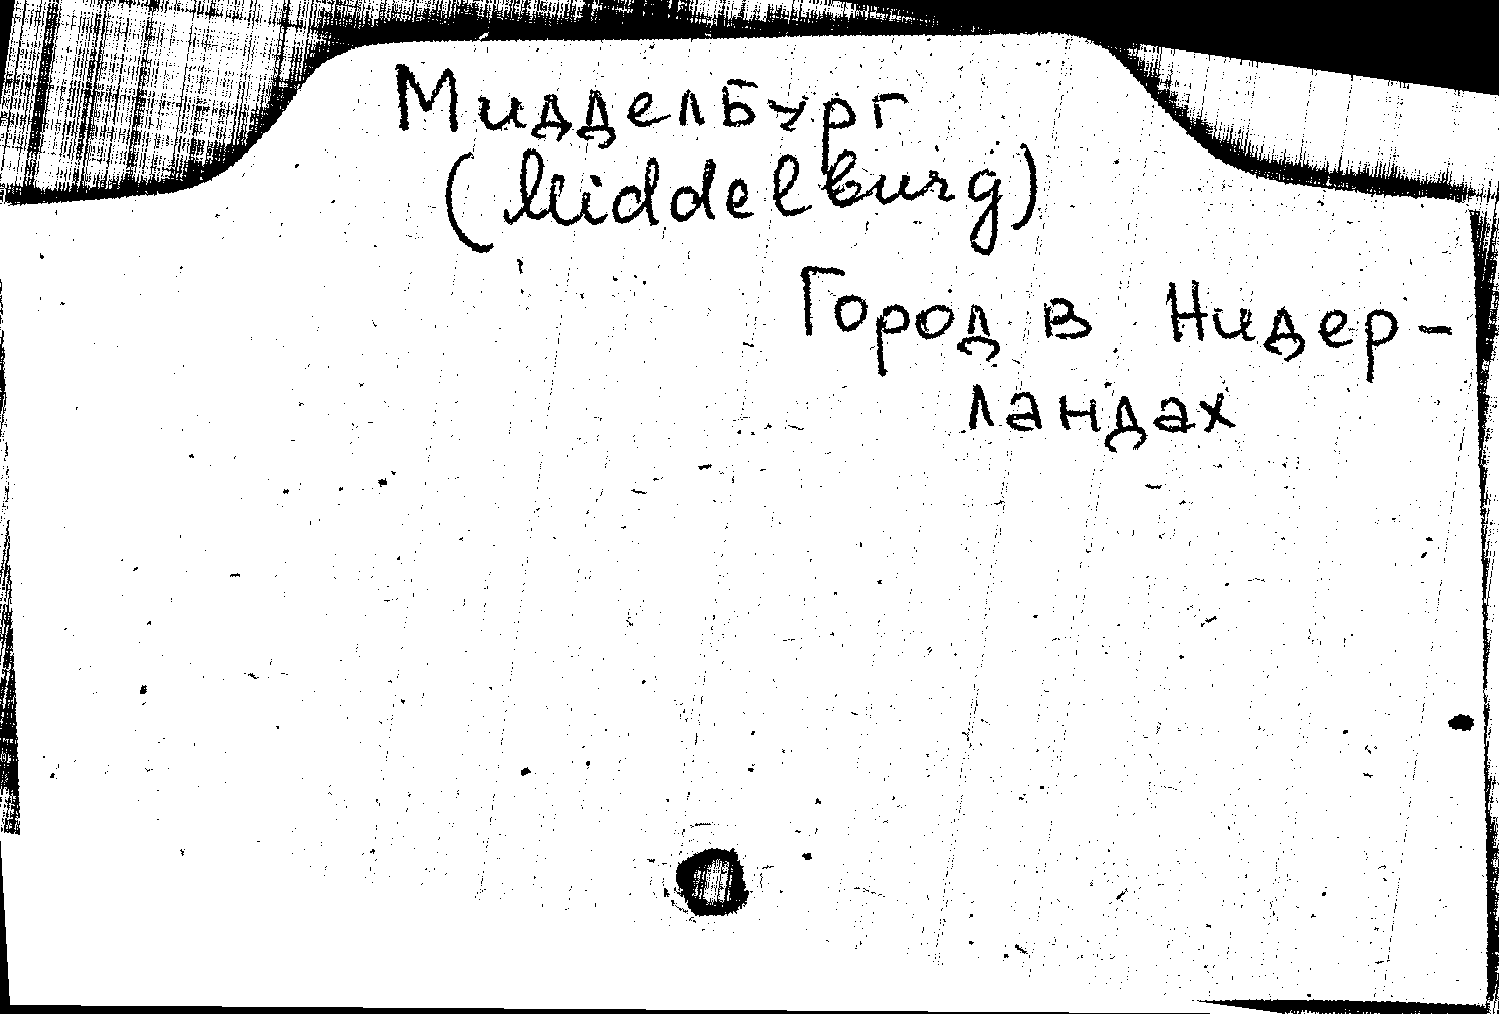 Мидделбург
(Middelburg)
Город в Нидер-
ландах